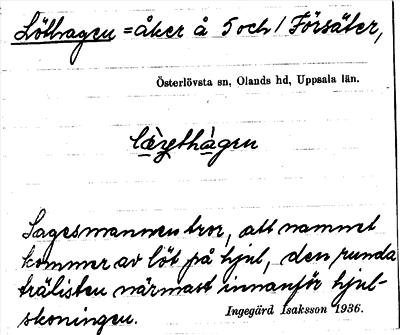 Löthagen = åker å 5 och 1 Försäter,
Österlövsta sn, Olands hd, Uppsala län.
Sagesmannen tror, att namnet
kommer av löt på hjul, den runda
trälisten närmast innanför hjul-
skoningen.
Ingegärd Isaksson 1936.